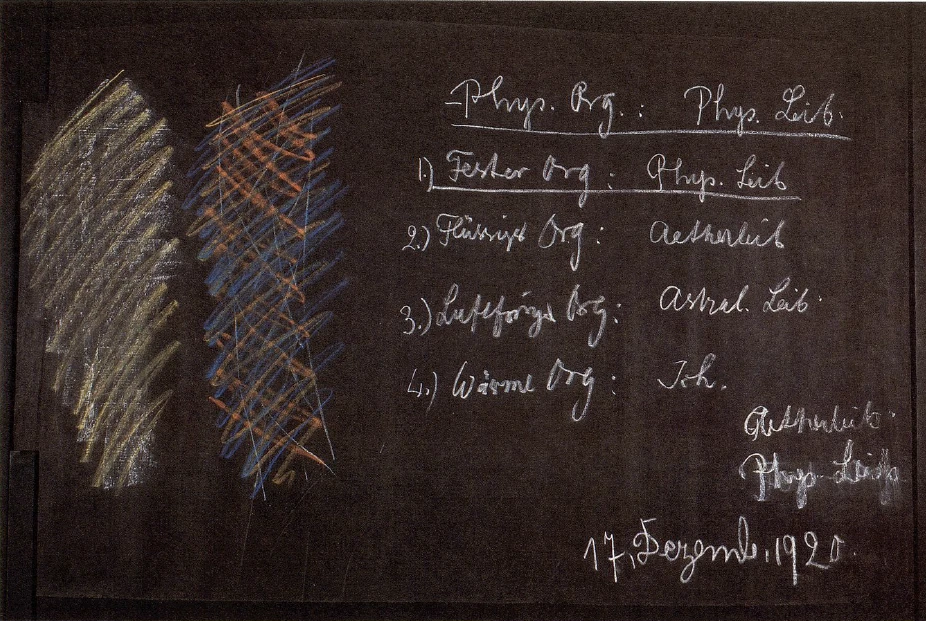 Phys. Org.: Phys. Leib.
1) Fester Org: Phys. Leib
2.) Flüssige Org: Aetherleib
3.) Luftförmige Org: Astral. Leib.
4.) Wärme Org: Ich.
Aetherleib
Phys. Leib
17. Dezemb. 1920.